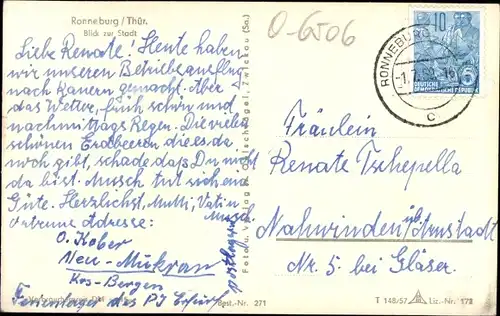 Ronneburg / Thür.
Blick zur Stadt
O-6506
Liebe Renate! Heute haben
wir unseren Betriebsausflug
nach Kauern gemacht. Aber
das Wetter, früh schön und
nachmittags Regen. Die vielen
schönen Erdbeeren die es da
noch gibt, schade daß Du nicht
da bist. Musch tut sich end
Güte. Herzlichst, Mutti, Vati u.
Musch.
Adresse:
O. Kober
Neu-Mukran postlagernd
Krs-Bergen
Ferienlager des PJ Erfurt
Verbraucherpreis DM
Best.-Nr. 271
Foto u. Verlag Zwickau (Sa.)
RONNEBURG
10
5
DEUTSCHE
DEMOKRATISCHE REPUBLIK
c
Fräulein
Renate Tschepella
Nahwinden üb/Arnstadt
Nr. 5 bei Gläser.
T 148/57 Liz.-Nr. 172